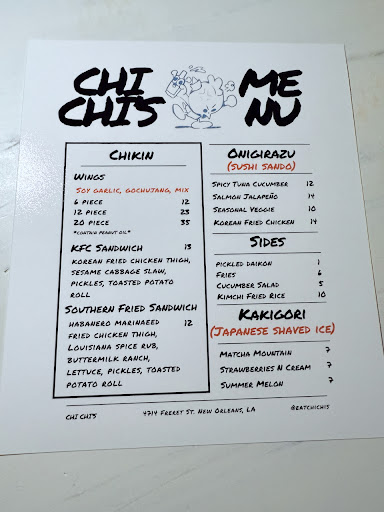 CHI CHI'S
MENU
CHIKIN
WINGS
SOY GARLIC, GOCHUJANG, MIX
6 PIECE 12
12 PIECE 23
20 PIECE 35
*CONTAIN PEANUT OIL*
KFC SANDWICH 13
KOREAN FRIED CHICKEN THIGH,
SESAME CABBAGE SLAW,
PICKLES, TOASTED POTATO
ROLL
SOUTHERN FRIED SANDWICH
HABANERO MARINAEED 12
FRIED CHICKEN THIGH,
LOUISIANA SPICE RUB,
BUTTERMILK RANCH,
LETTUCE, PICKLES, TOASTED
POTATO ROLL
ONIGIRAZU
(SUSHI SANDO)
SPICY TUNA CUCUMBER 12
SALMON JALAPEÑO 14
SEASONAL VEGGIE 10
KOREAN FRIED CHICKEN 14
SIDES
PICKLED DAIKON 1
FRIES 6
CUCUMBER SALAD 5
KIMCHI FRIED RICE 10
KAKIGORI
(JAPANESE SHAVED ICE)
MATCHA MOUNTAIN 7
STRAWBERRIES N CREAM 7
SUMMER MELON 7
CHI CHI'S 4714 FRERET ST. NEW ORLEANS, LA @EATCHICHIS